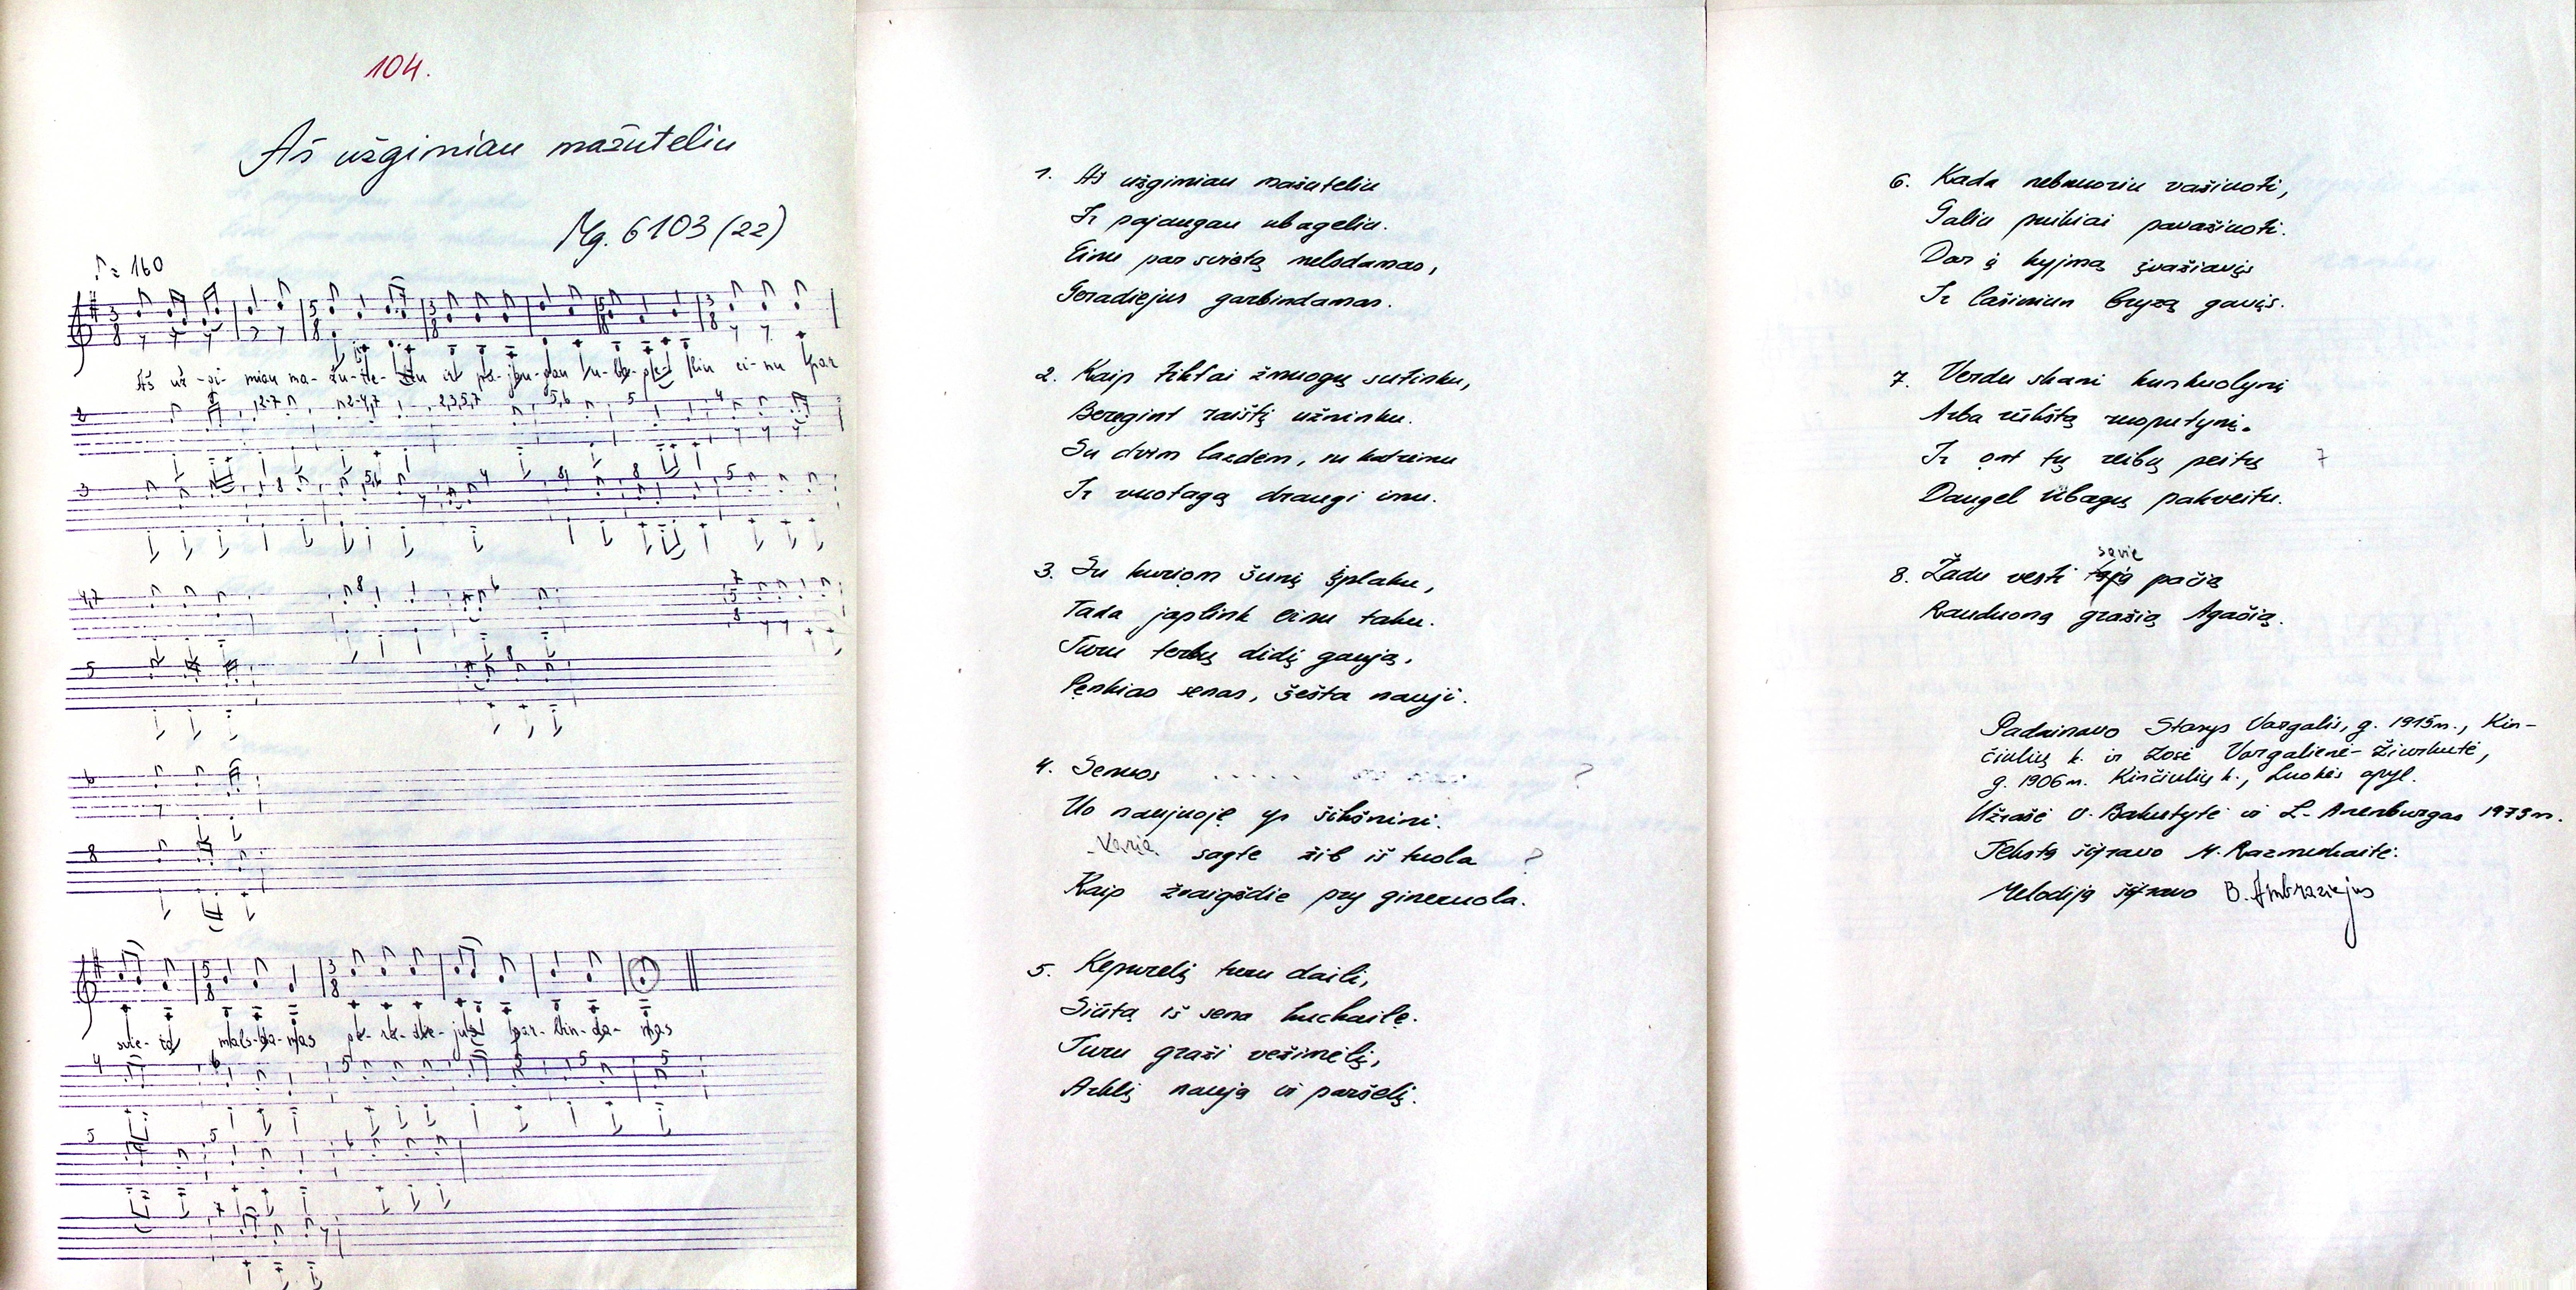 104.
Aš užgimiau mažuteliu
Mg. 6103 (22)
♪ = 160
Aš už-gi-miau ma-žu-te-liu ir pa-jau-gau u-ba-ge-liu ei-nu par
svie-tą mels-da-mas ge-ra-die-jus gar-bin-da-mas
1. Aš užgimiau mažuteliu
Ir pajaugau ubageliu.
Einu par svietą melsdamas,
Geradiejus garbindamas.
2. Kaip tiktai žmuogų sutinku,
Beregint raištį užninku.
Su dvim lazdem, su katrimu
Ir vuotagą draugi imu.
3. Su kuriom šunį šplaku,
Tada japlink einu taku.
Turu terbų didį gaują,
Penkias senas, šešta nauji.
4. Senuos ?
Uo naujuoję yr šikšnini.
Varia sagte žib iš tuola ?
Kaip žvaigždie pry gineruola.
5. Kepurelį turu daili,
Siūtą iš sena kuckailę.
Turu graži vežimėlį,
Arklį naują ir paršelį.
6. Kada nebnuoriu važiuoti,
Galiu puikiai pavažiuoti.
Dar į kyjmą įvažiavįs
Ir lašiniun bryzą gavįs.
7. Verdu skani kunkuolynį
Arba rūkštą ruoputynį.
Ir ont tų reibų peitų 7
Daugel ūbagų pakveitu.
8. Žadu vesti savie pačią
Rauduoną gražią Agačią.
Padainavo Stasys Vargalis, g. 1915 m., Kin-
čiulių k. ir Zosė Vargalienė-Žiurkutė,
g. 1906 m. Kinčiulių k., Luokės apyl.
Užrašė V. Bakutytė ir L. Arenburgas 1973 m.
Tekstą šifravo M. Razmukaitė.
Melodiją šifravo B. Ambraziejus